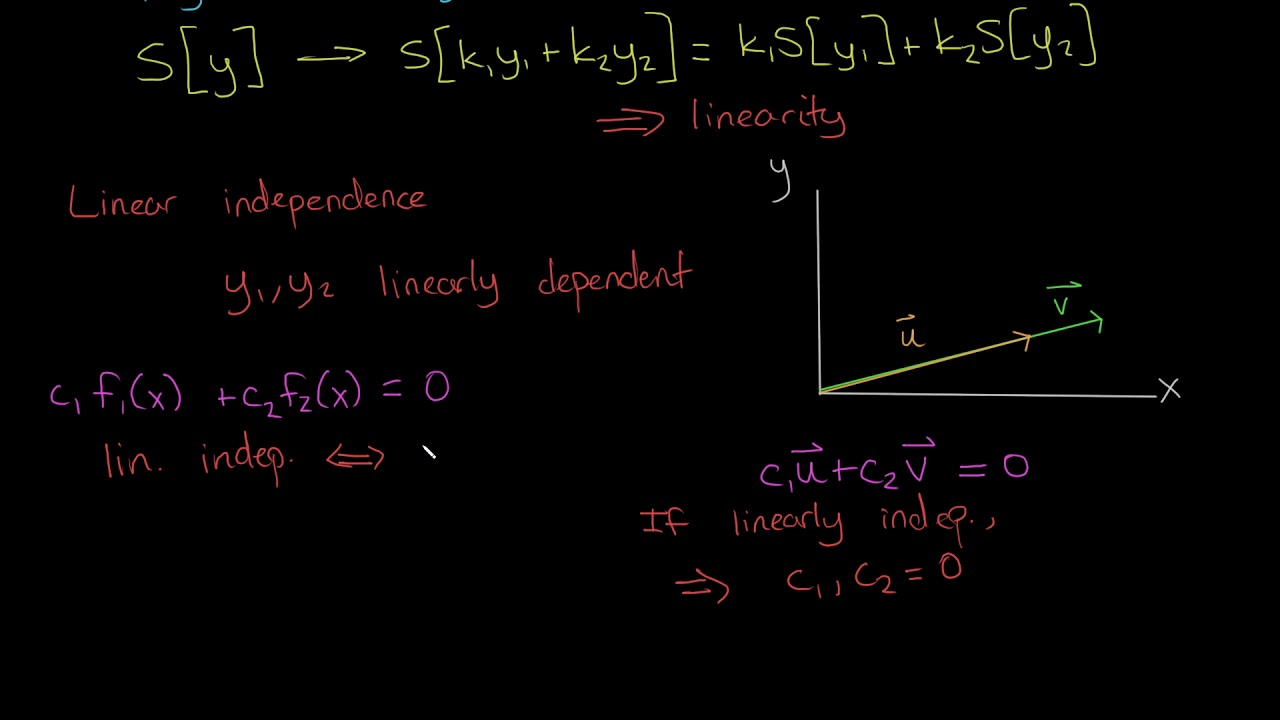 S[y] → S[k₁y₁ + k₂y₂] = k₁S[y₁] + k₂S[y₂]
⇒ linearity
Linear independence
y₁, y₂ linearly dependent
c₁f₁(x) + c₂f₂(x) = 0
lin. indep. ⇔
y
u⃗
v⃗
x
c₁u⃗ + c₂v⃗ = 0
If linearly indep.,
⇒ c₁, c₂ = 0